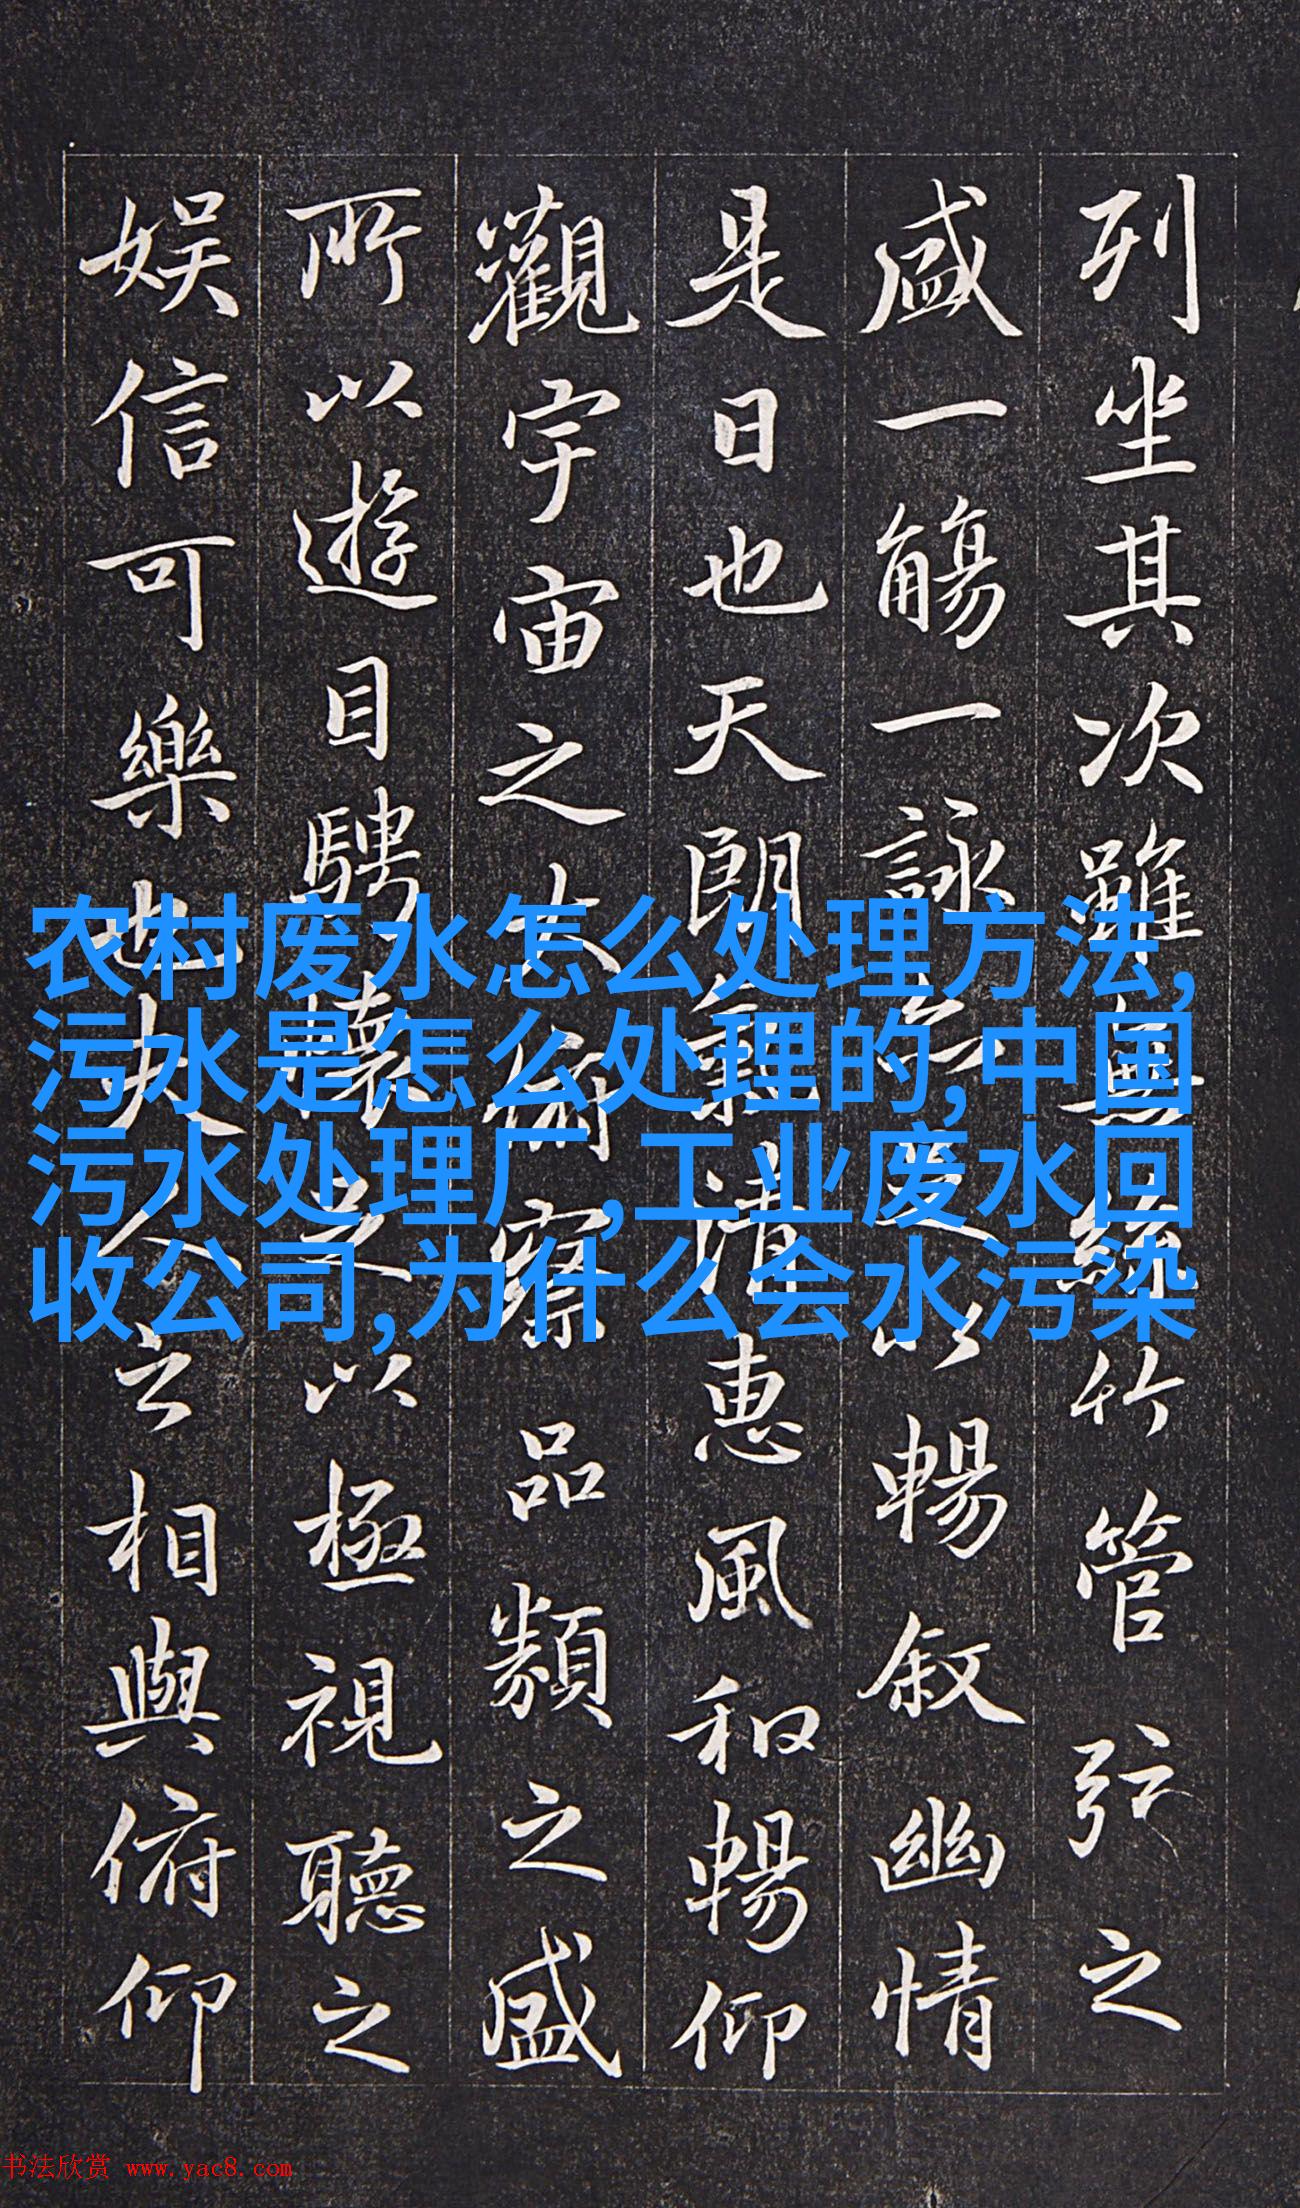 列坐其次雖無絲竹管弦之
盛一觴一詠亦足以暢敘幽情
是日也天朗氣清惠風和暢仰
觀宇宙之大俯察品類之盛
所以遊目騁懷足以極視聽之
娛信可樂也夫人之相與俯仰
农村废水怎么处理方法,
污水是怎么处理的,中国
污水处理厂,工业废水回
收公司,为什么会水污染
书法欣赏 www.yac8.com